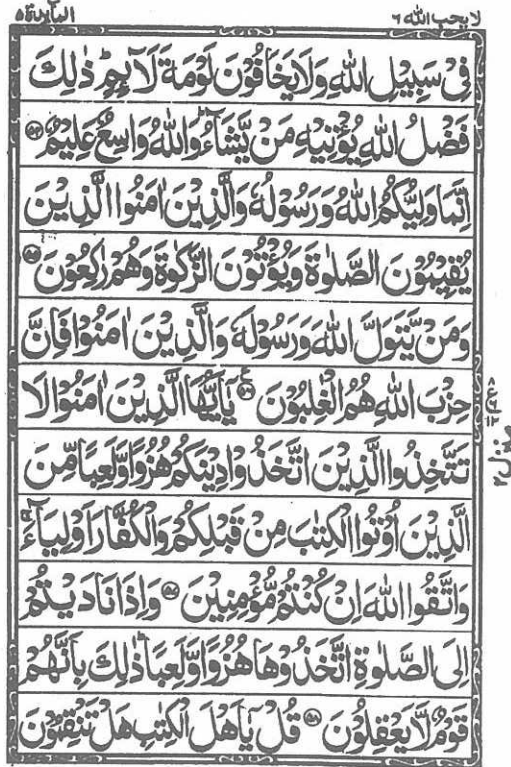 لا يحب الله ٦
المآىدة ٥
فِىۡ سَبِيۡلِ اللّٰهِ وَلَا يَخَافُوۡنَ لَوۡمَةَ لَاۤٮِٕمٍ‌ؕ ذٰ لِكَ
فَضۡلُ اللّٰهِ يُؤۡتِيۡهِ مَنۡ يَّشَآءُ‌ ؕ وَاللّٰهُ وَاسِعٌ عَلِيۡمٌ ﴿۵۴﴾
اِنَّمَا وَلِيُّكُمُ اللّٰهُ وَرَسُوۡلُهٗ وَالَّذِيۡنَ اٰمَنُوا الَّذِيۡنَ
يُقِيۡمُوۡنَ الصَّلٰوةَ وَيُؤۡتُوۡنَ الزَّكٰوةَ وَهُمۡ رٰكِعُوۡنَ ﴿۵۵﴾
وَمَنۡ يَّتَوَلَّ اللّٰهَ وَ رَسُوۡلَهٗ وَالَّذِيۡنَ اٰمَنُوۡا فَاِنَّ
حِزۡبَ اللّٰهِ هُمُ الۡغٰلِبُوۡنَ ﴿۵۶﴾ يٰۤـاَيُّهَا الَّذِيۡنَ اٰمَنُوۡا لَا
تَتَّخِذُوا الَّذِيۡنَ اتَّخَذُوۡا دِيۡنَكُمۡ هُزُوًا وَّلَعِبًا مِّنَ
الَّذِيۡنَ اُوۡتُوا الۡكِتٰبَ مِنۡ قَبۡلِكُمۡ وَالۡـكُفَّارَ اَوۡلِيَآءَ‌ ۚ
وَاتَّقُوا اللّٰهَ اِنۡ كُنۡتُمۡ مُّؤۡمِنِيۡنَ ﴿۵۷﴾ وَاِذَا نَادَيۡتُمۡ
اِلَى الصَّلٰوةِ اتَّخَذُوۡهَا هُزُوًا وَّلَعِبًا‌ ؕ ذٰ لِكَ بِاَنَّهُمۡ
قَوۡمٌ لَّا يَعۡقِلُوۡنَ ﴿۵۸﴾ قُلۡ يٰۤـاَهۡلَ الۡـكِتٰبِ هَلۡ تَنۡقِمُوۡنَ
منزل ٢